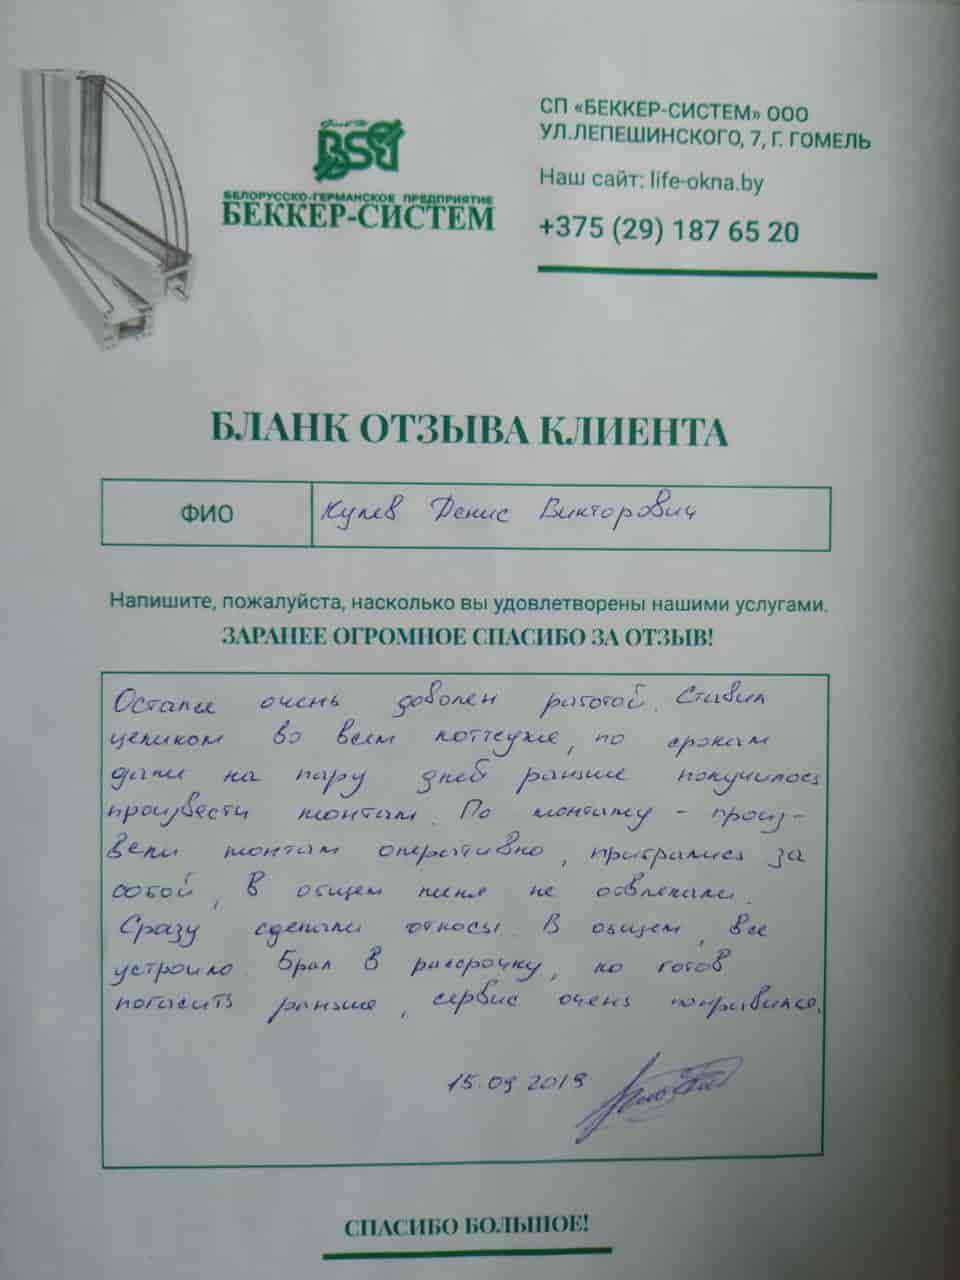 BSГ
БЕЛОРУССКО-ГЕРМАНСКОЕ ПРЕДПРИЯТИЕ
БЕККЕР-СИСТЕМ
СП «БЕККЕР-СИСТЕМ» ООО
УЛ.ЛЕПЕШИНСКОГО, 7, Г. ГОМЕЛЬ
Наш сайт: life-okna.by
+375 (29) 187 65 20
БЛАНК ОТЗЫВА КЛИЕНТА
ФИО
Кулев Денис Викторович
Напишите, пожалуйста, насколько вы удовлетворены нашими услугами.
ЗАРАНЕЕ ОГРОМНОЕ СПАСИБО ЗА ОТЗЫВ!
Остался очень доволен работой. Ставил
целиком во всем коттедже, по срокам
даже на пару дней раньше получилось
произвести монтаж. По монтажу - произ-
вели монтаж оперативно, прибрались за
собой, в общем меня не отвлекали.
Сразу сделали откосы. В общем, все
устроило. Брал в рассрочку, но готов
погасить раньше, сервис очень понравился.
15.09 2019
СПАСИБО БОЛЬШОЕ!